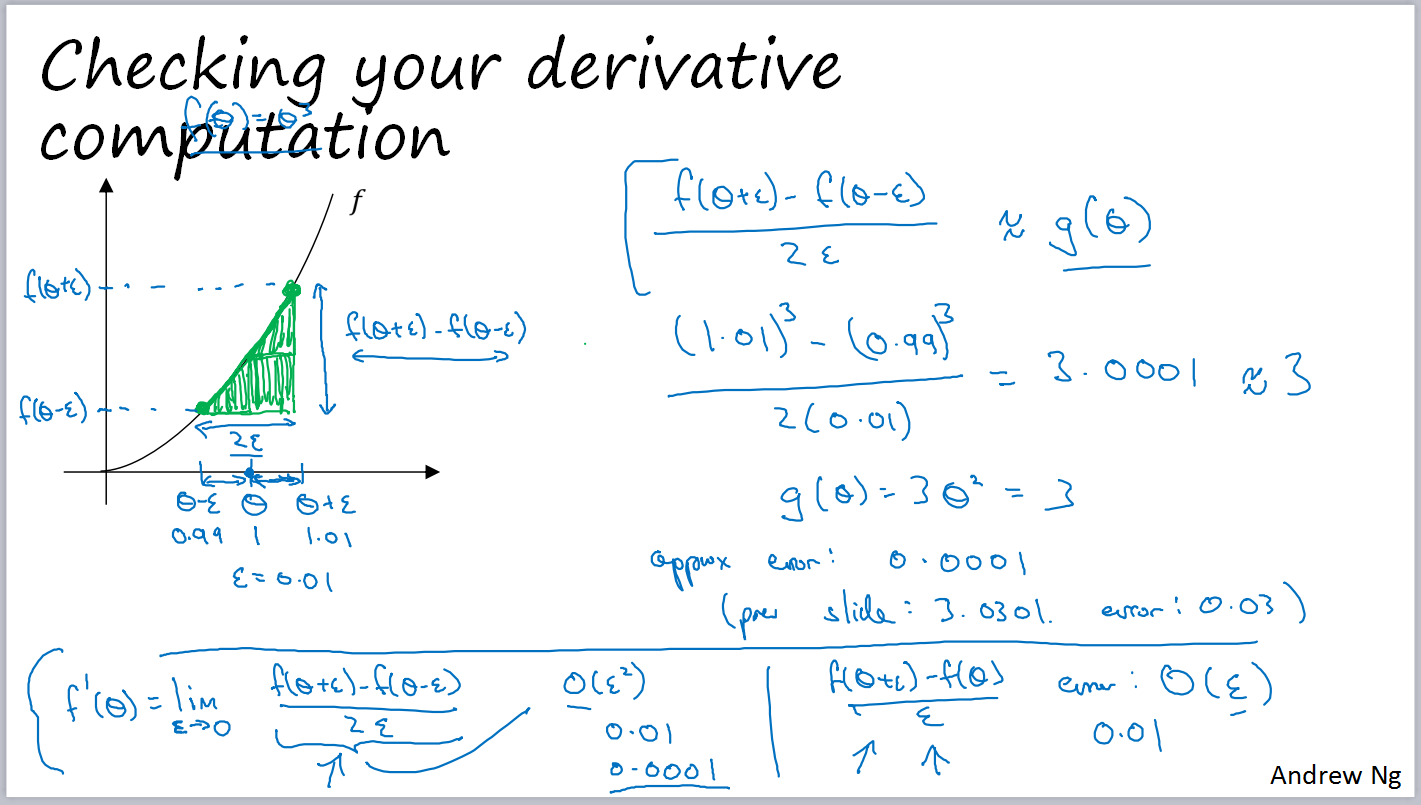 Checking your derivative
computation
f(θ) = θ³
f
f(θ+ε)
f(θ-ε)
f(θ+ε) - f(θ-ε)
2ε
θ-ε θ θ+ε
0.99 1 1.01
ε = 0.01
f(θ+ε) - f(θ-ε) / 2ε ≈ g(θ)
(1.01)³ - (0.99)³ / 2(0.01) = 3.0001 ≈ 3
g(θ) = 3θ² = 3
approx error: 0.0001
(prev slide: 3.0301. error: 0.03)
f'(θ) = lim ε→0 f(θ+ε) - f(θ-ε) / 2ε O(ε²)
0.01
0.0001
f(θ+ε) - f(θ) / ε error: O(ε)
0.01
Andrew Ng